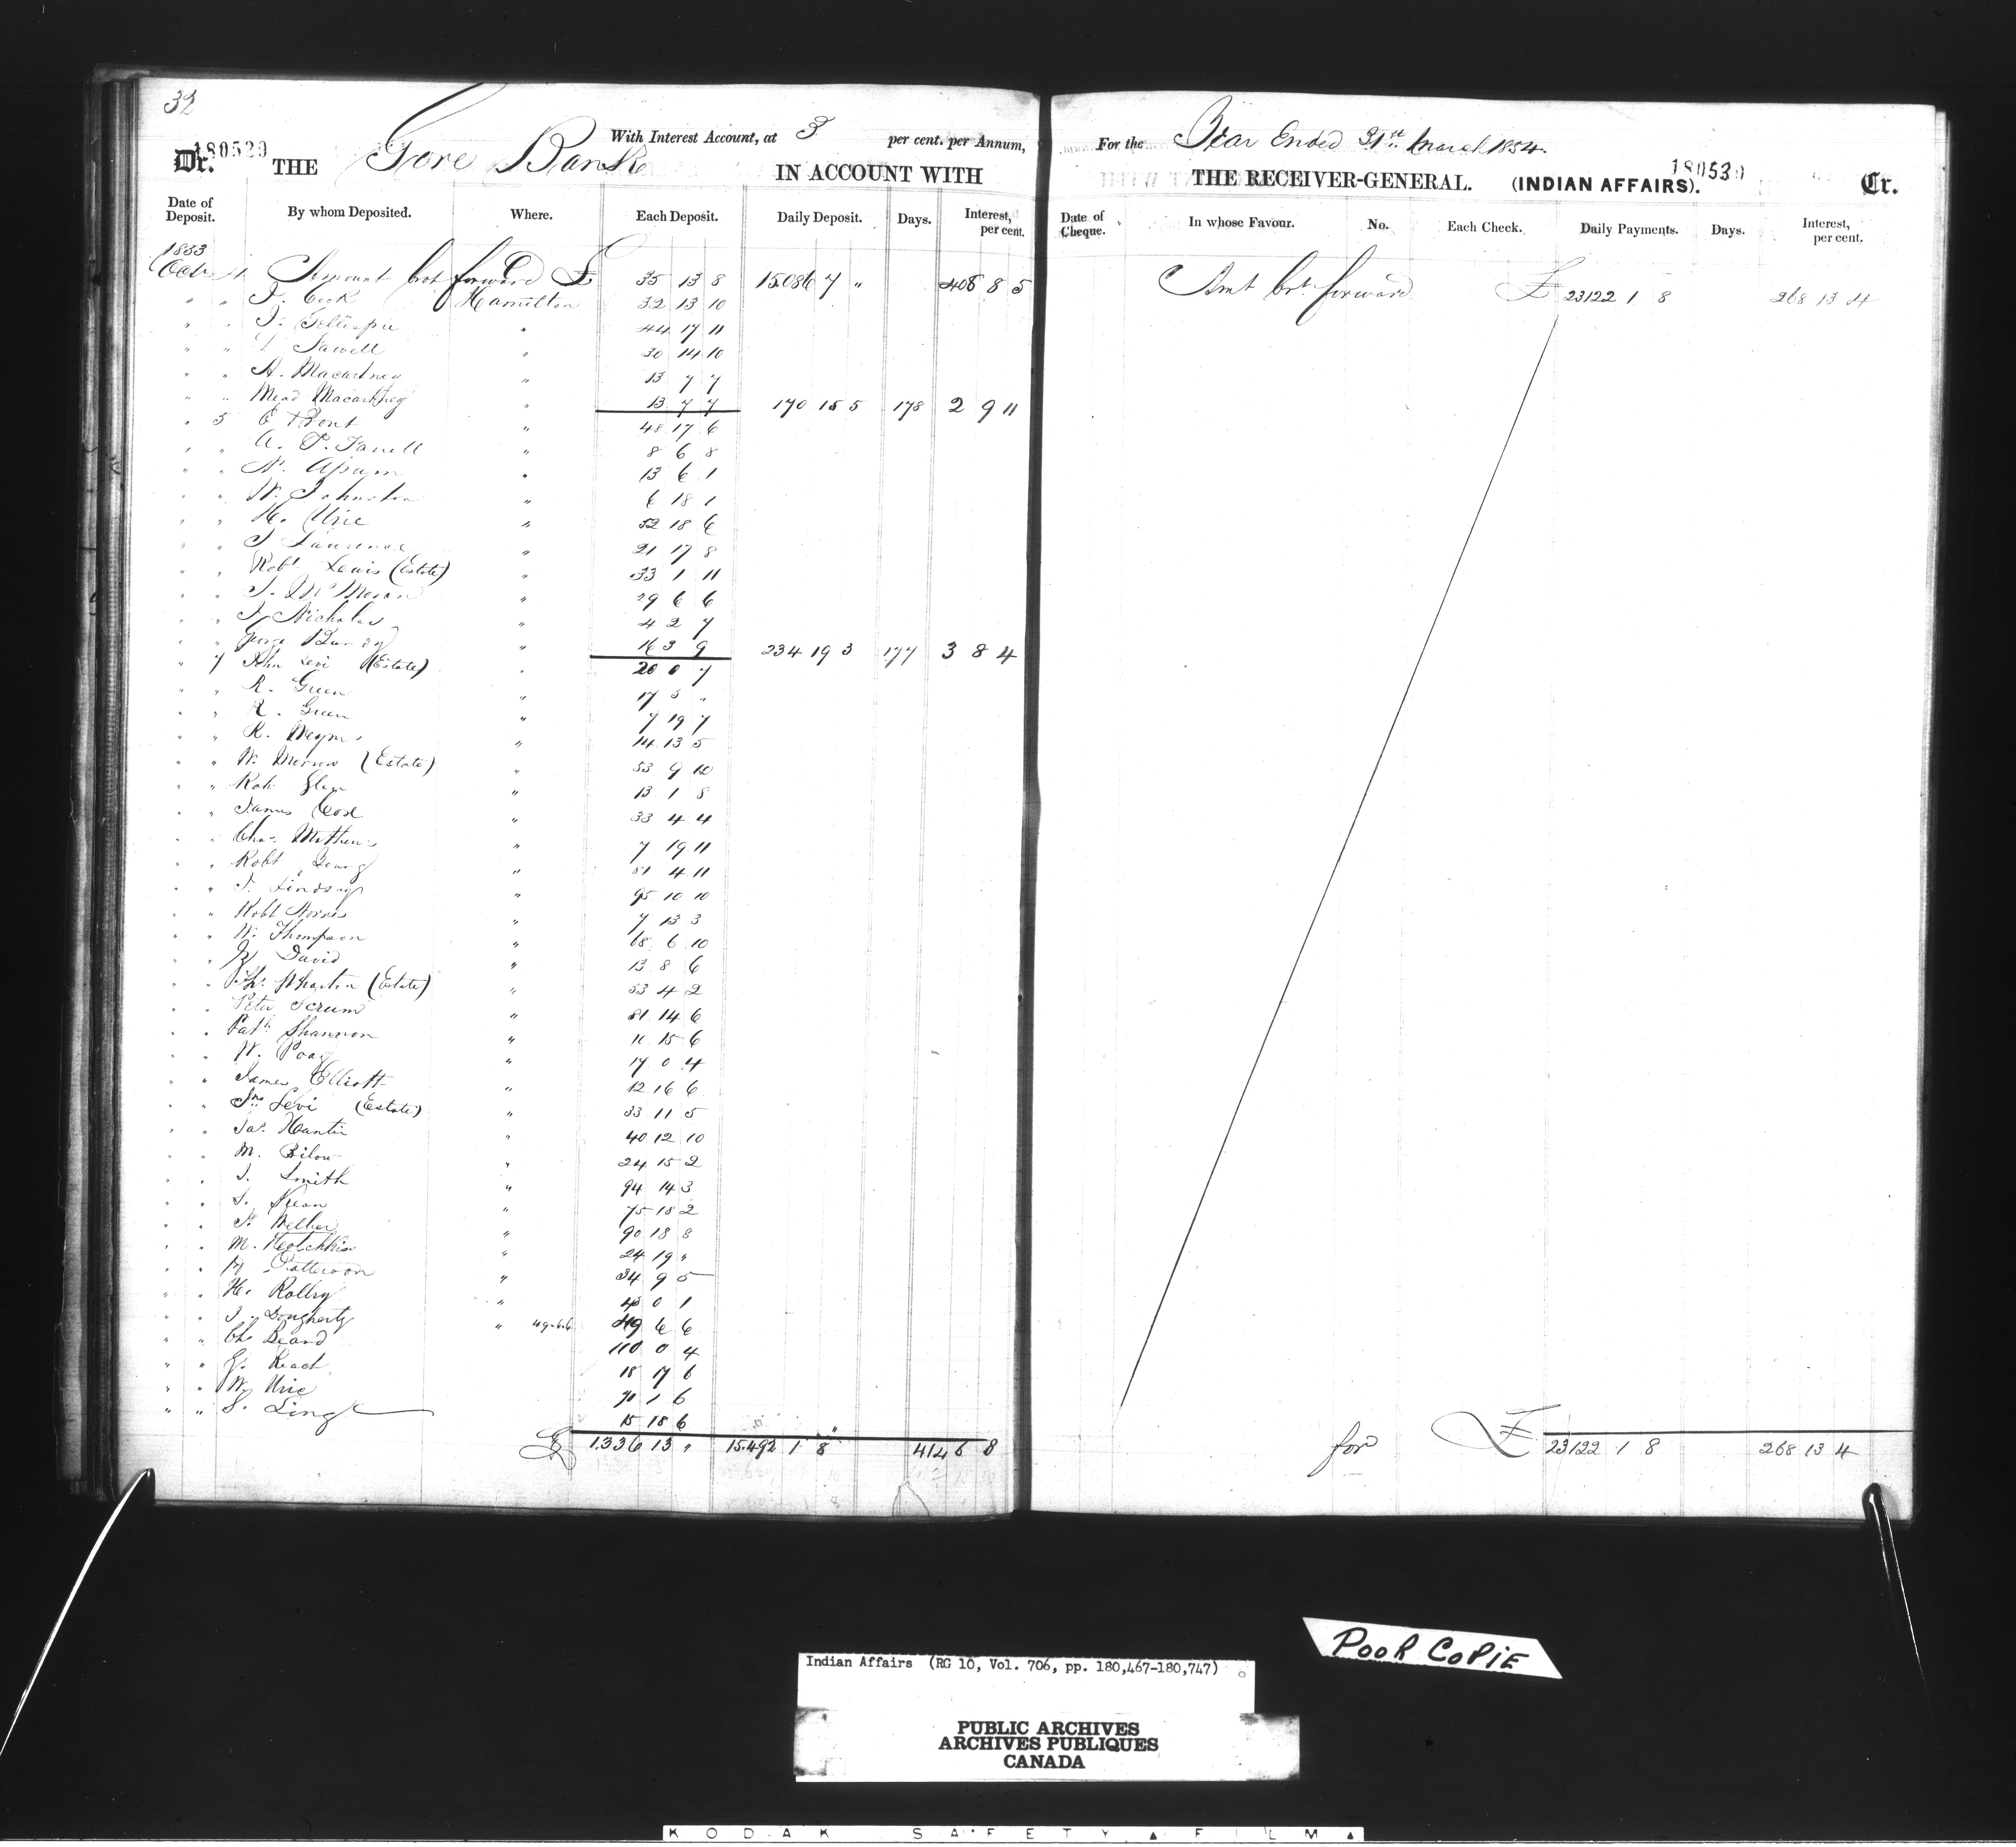 32
180529
With Interest Account, at 3 per cent. per Annum,
Dr. THE Gore Bank IN ACCOUNT WITH
Date of Deposit. By whom Deposited. Where. Each Deposit. Daily Deposit. Days. Interest, per cent.
1853
Octr 4 Amount bot forward £ 35 13 8 15086 7 " 408 8 5
" " T. Cook Hamilton 32 13 10
" " J. Gillespie " 44 17 11
" " Sawell " 30 14 10
" " A. Macartney " 13 7 7
" " Mead Macartney " 13 7 7 170 15 5 178 2 9 11
" 5 E " 48 17 6
" " A. P. " 8 6 8
" " " 13 6 1
" " W. Johnston " 6 18 1
" " H. Urie " 52 18 6
" " Laurence " 21 17 8
" " Robt Lewis (Estate) " 33 1 11
" " " 29 6 6
" " Nicholas " 4 2 7
" " 16 3 9 234 19 3 177 3 8 4
" 7 John Levi (Estate) " 20 0 7
" " R. Green " 17 5 "
" " R. Green " 7 19 7
" " R. " 14 13 5
" " W. Morrow (Estate) " 53 9 10
" " Robt " 13 1 8
" " James " 33 4 4
" " Chas. Mathews " 7 19 11
" " Robt Young " 81 4 11
" " J. Lindsay " 95 10 10
" " Robt " 7 13 3
" " W. Thompson " 68 6 10
" " David " 13 8 6
" " (Estate) " 53 4 2
" " Peter " 81 14 6
" " Patk Shannon " 15 6
" " W. Poag " 17 0 4
" " James Elliott " 12 16 6
" " Jno Levi (Estate) " 33 11 5
" " Jas. " 40 12 10
" " M. Bilow " 24 15 2
" " J. Smith " 94 14 3
" " " 75 18 2
" " " 90 18 8
" " M. Hotchkiss " 24 19 "
" " Patterson " 34 9 5
" " H. " 0 1
" " J. Dougherty " 49.6.6 49 6 6
" " Chs Beard 110 0 4
" " Reach 18 17 6
" " W. Urie 71 1 6
" " S. Ling 15 18 6
£ 1336 13 " 15.492 1 8 414 6 8
180530
For the Year Ended 31st March 1854.
THE RECEIVER-GENERAL. (INDIAN AFFAIRS). Cr.
Date of Cheque. In whose Favour. No. Each Check. Daily Payments. Days. Interest, per cent.
Amt brt forward £ 23122 1 8 268 13 4
for £ 23122 1 8 268 13 4
POOR COPIE
Indian Affairs (RG 10, Vol. 706, pp. 180,467-180,747)
PUBLIC ARCHIVES
ARCHIVES PUBLIQUES
CANADA
KODAK SAFETY FILM